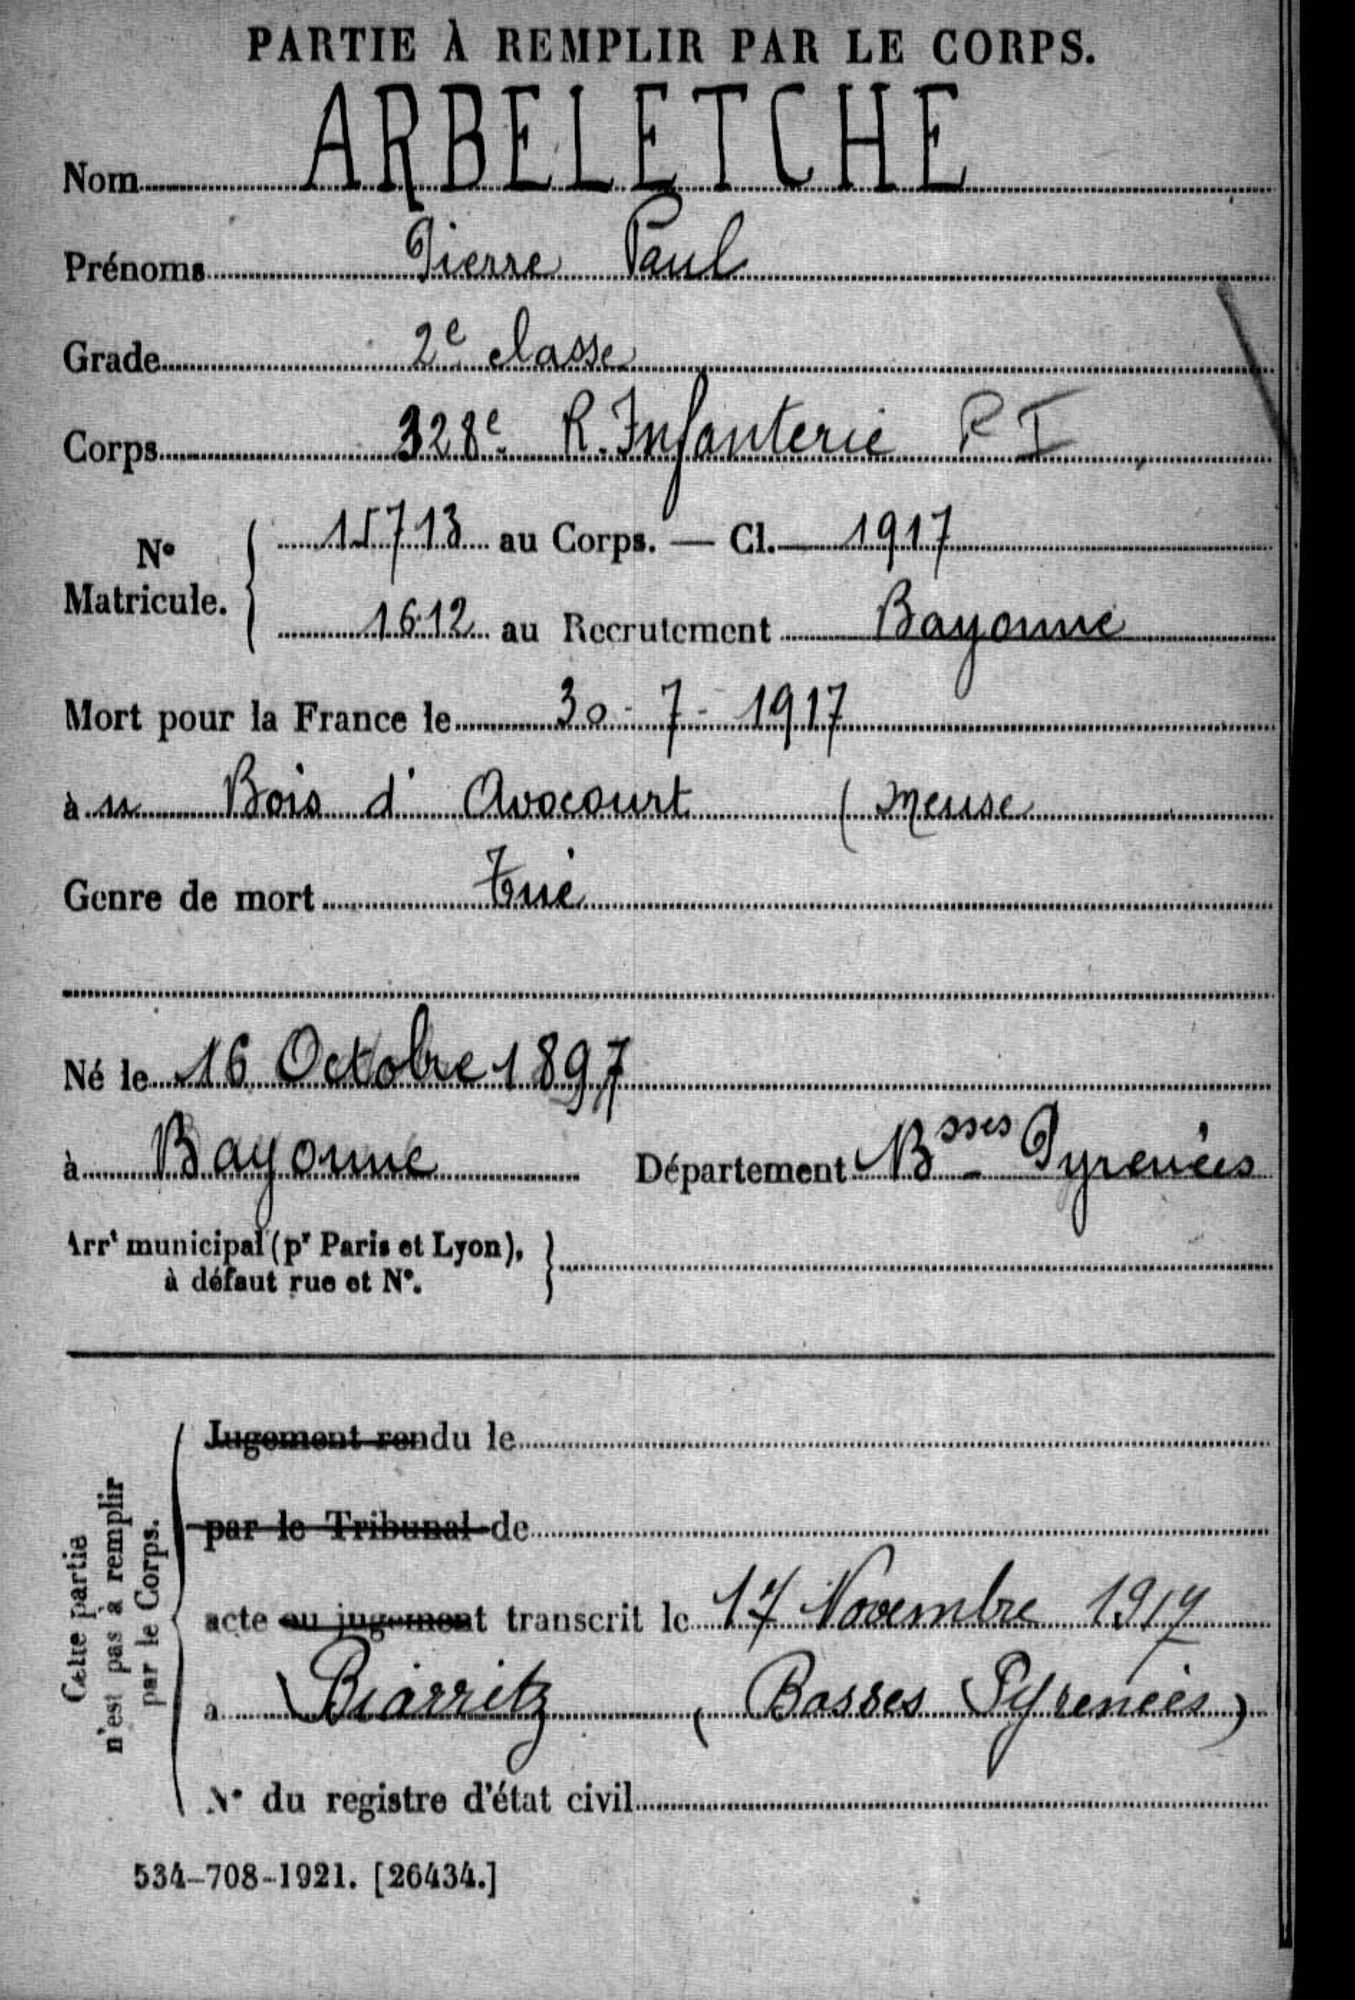 PARTIE À REMPLIR PAR LE CORPS.
Nom ARBELETCHE
Prénoms Pierre Paul
Grade 2e classe
Corps 328e R. Infanterie R I
N° Matricule. { 15713 au Corps. — Cl. 1917
1612 au Recrutement Bayonne
Mort pour la France le 30 - 7 - 1917
à au Bois d' Avocourt ( Meuse
Genre de mort Tué
Né le 16 Octobre 1897
à Bayonne Département Bsses Pyrénées
Arrt municipal (pr Paris et Lyon), }
à défaut rue et N°.
Cette partie
n'est pas à remplir
par le Corps.
Jugement rendu le
par le Tribunal de
acte ou jugement transcrit le 17 Novembre 1917
à Biarritz ( Basses Pyrénées )
N° du registre d'état civil
534-708-1921. [26434.]